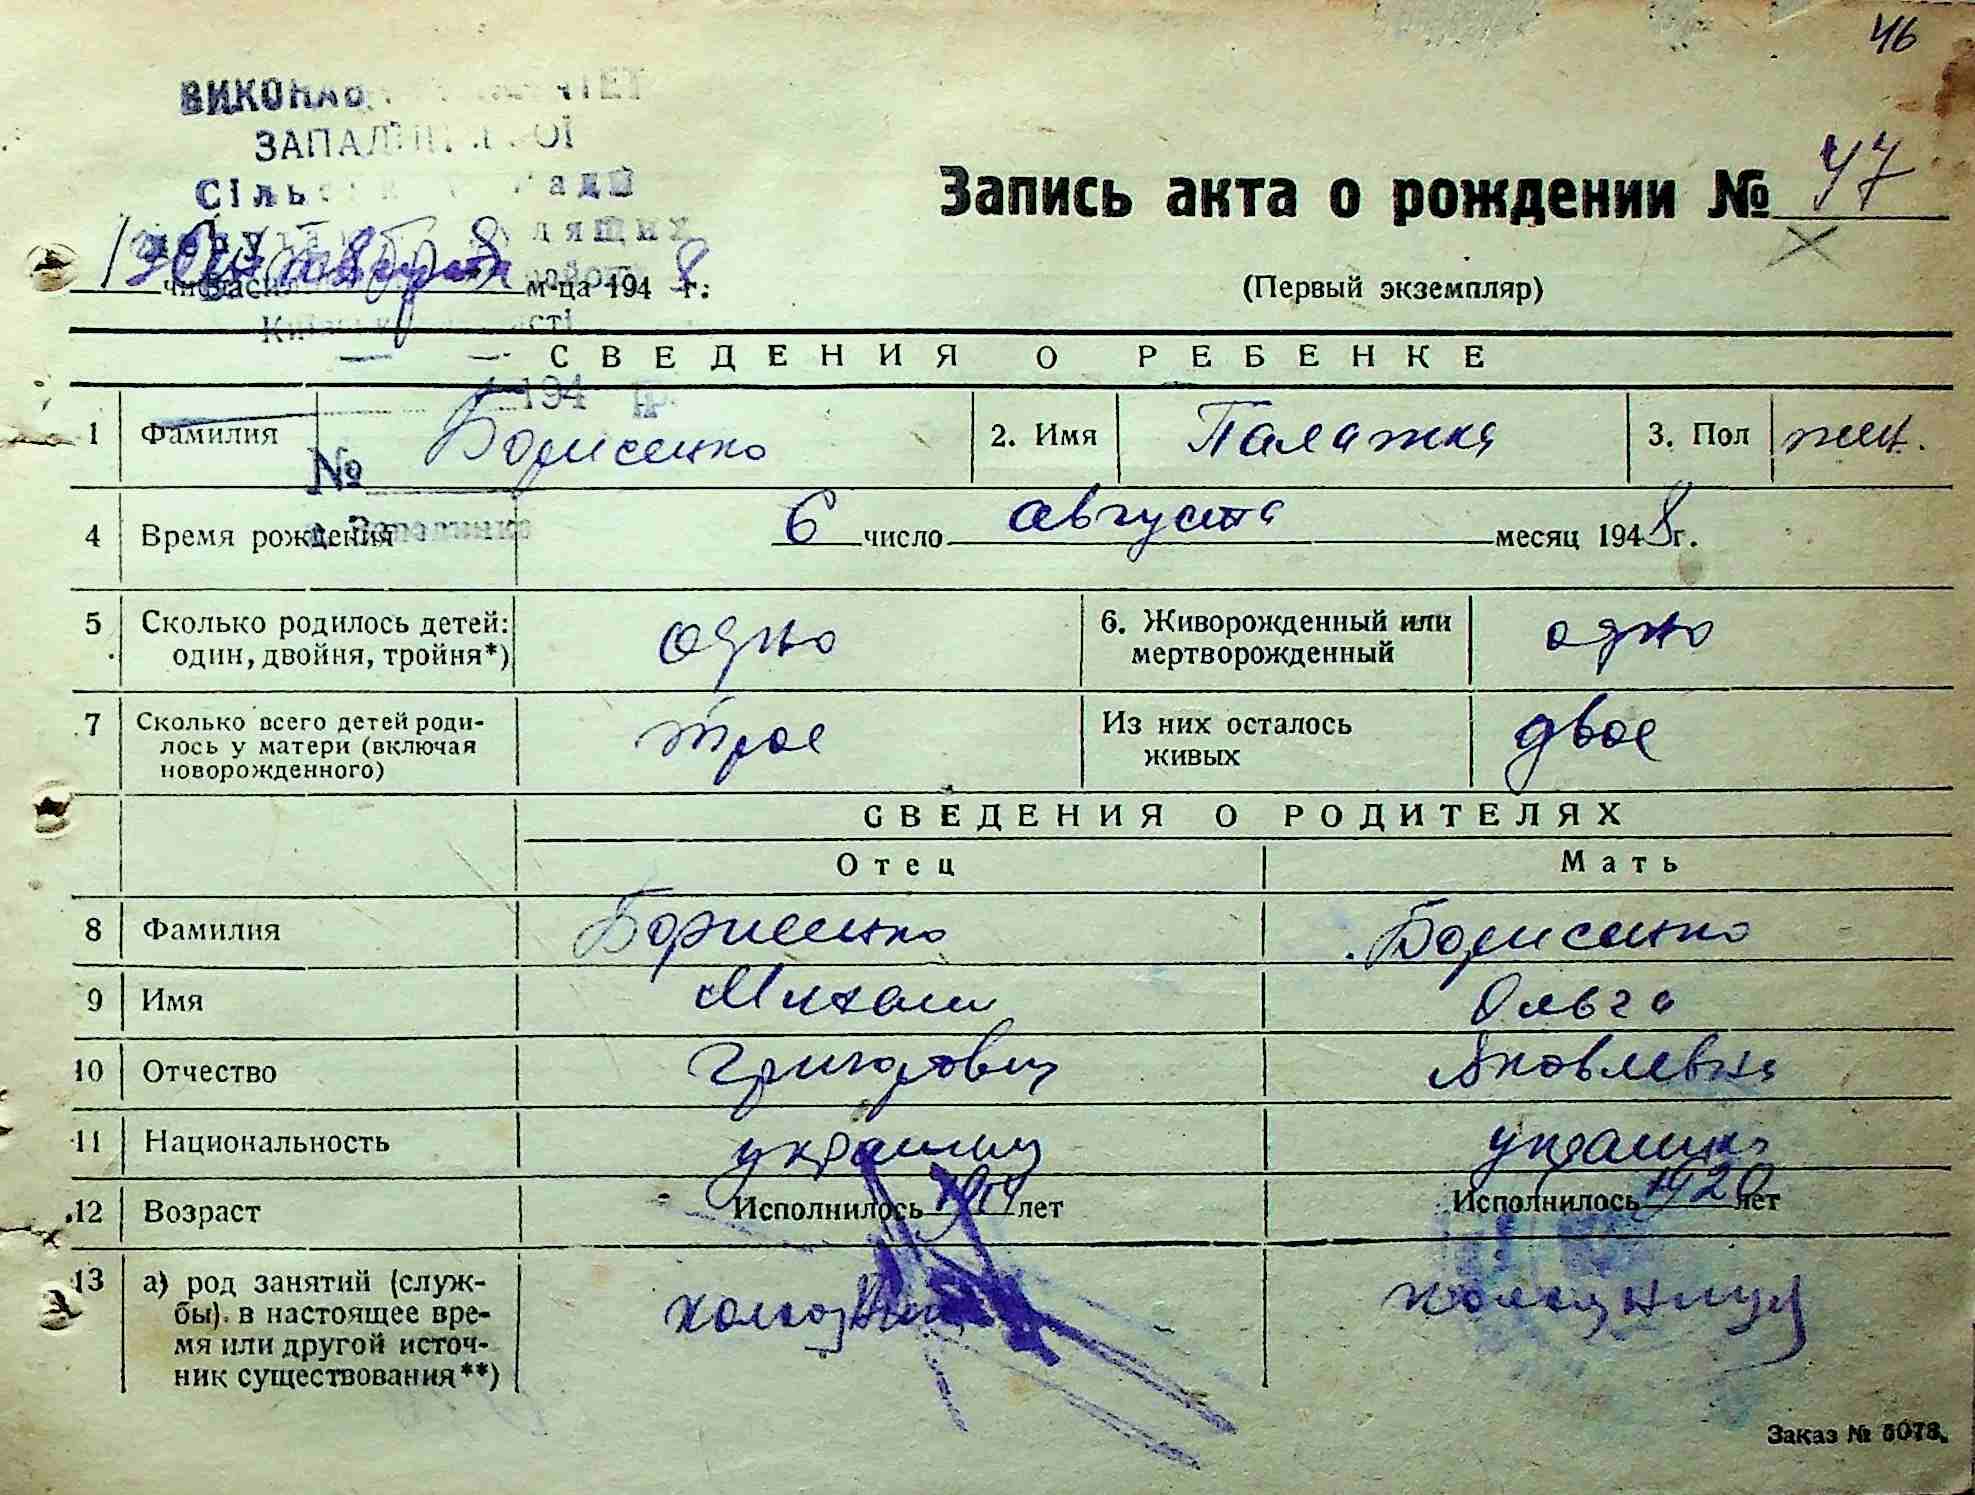 46
ЗАПАД
Сіль
Запись акта о рождении № 47
м-ца 1948 г.
(Первый экземпляр)
СВЕДЕНИЯ О РЕБЕНКЕ
194 р.
1 Фамилия Борисенко 2. Имя Палажка 3. Пол жен.
№
4 Время рождения 6 число августа месяц 1948 г.
5 Сколько родилось детей: одно 6. Живорожденный или одно
один, двойня, тройня*) мертворожденный
7 Сколько всего детей роди- трое Из них осталось двое
лось у матери (включая живых
новорожденного)
СВЕДЕНИЯ О РОДИТЕЛЯХ
Отец Мать
8 Фамилия Борисенко Борисенко
9 Имя Михаил Ольга
10 Отчество Григорович Яковлевна
11 Национальность украинец украинка
12 Возраст Исполнилось лет Исполнилось 1920 лет
13 а) род занятий (служ- колхозник колхозница
бы). в настоящее вре-
мя или другой источ-
ник существования**)
Заказ № 5078.